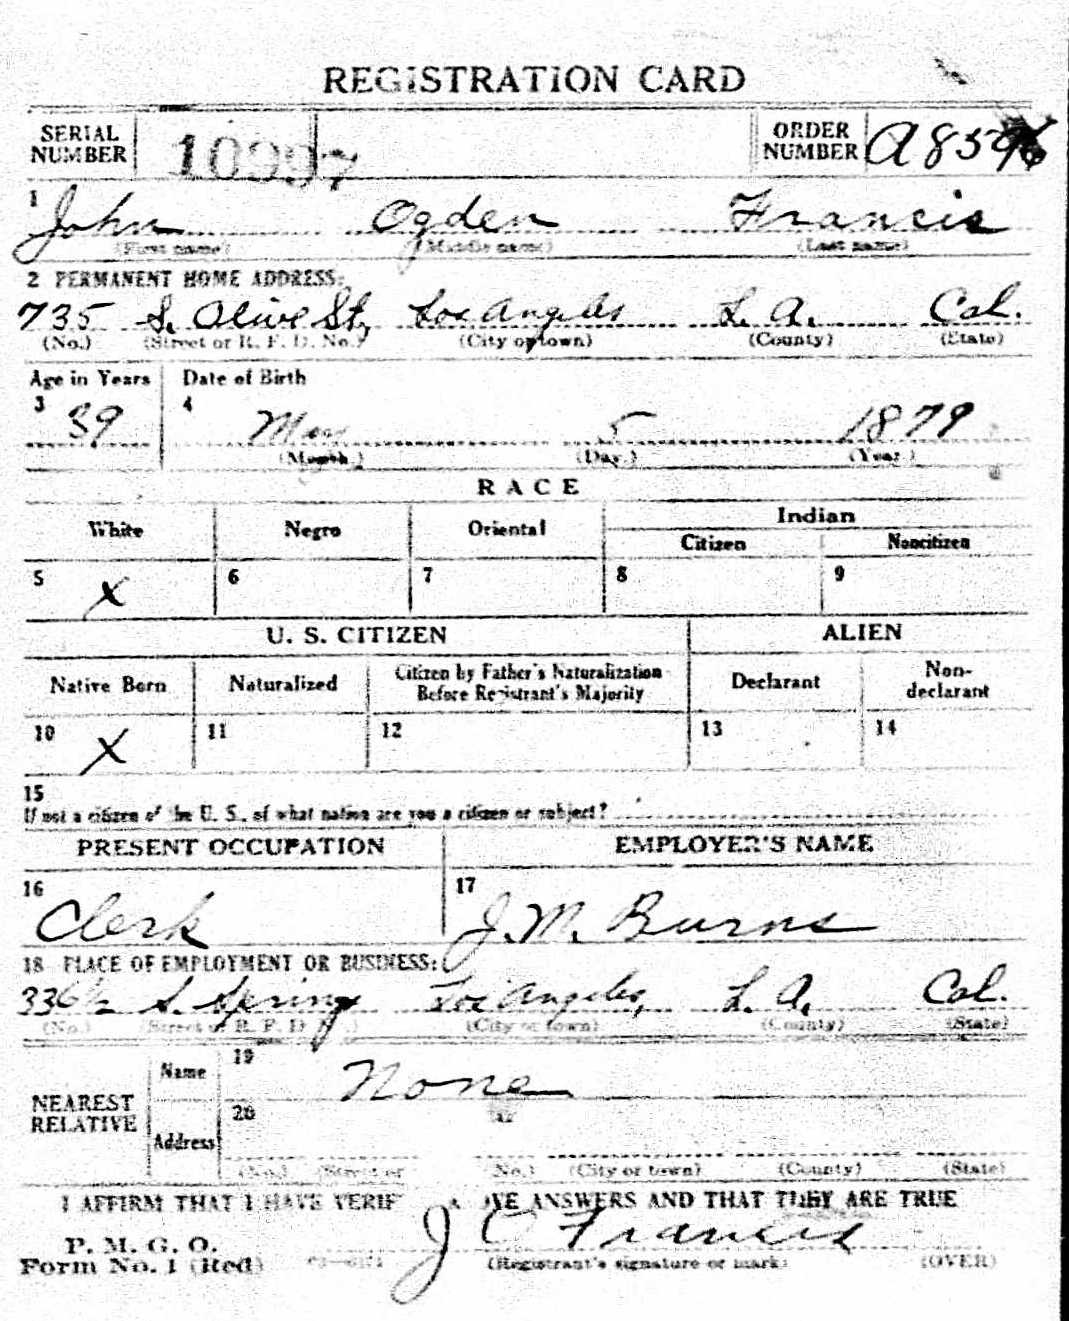 REGISTRATION CARD
SERIAL NUMBER 10997 ORDER NUMBER A859
1 John Ogden Francis
(First name) (Middle name) (Last name)
2 PERMANENT HOME ADDRESS:
735 S. Olive St, Los Angeles L. A. Cal.
(No.) (Street or R. F. D. No.) (City or town) (County) (State)
Age in Years Date of Birth
3 39 4 May 5 1879
(Month.) (Day.) (Year.)
RACE
White Negro Oriental Indian
Citizen Noncitizen
5 X 6 7 8 9
U. S. CITIZEN ALIEN
Native Born Naturalized Citizen by Father's Naturalization Before Registrant's Majority Declarant Non-declarant
10 X 11 12 13 14
15
If not a citizen of the U. S., of what nation are you a citizen or subject?
PRESENT OCCUPATION EMPLOYER'S NAME
16 Clerk 17 J. M. Burns
18 PLACE OF EMPLOYMENT OR BUSINESS:
336½ S. Spring Los Angeles, L. A. Cal.
(No.) (Street or R. F. D. ) (City or town) (County) (State)
NEAREST RELATIVE Name 19 None
Address 20
(No.) (Street or No.) (City or town) (County) (State)
I AFFIRM THAT I HAVE VERIF OVE ANSWERS AND THAT THEY ARE TRUE
P. M. G. O.
Form No. 1 (Red) J O Francis
(Registrant's signature or mark) (OVER)